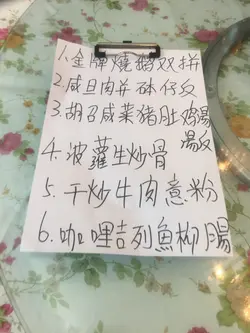 1.金牌燒鵝双拼
2.咸旦肉并砵仔攵
3.胡召咸菜豬肚鸡湯
湯攵
4.波蘿生炒骨
5.干炒牛肉意粉
6.咖哩吉列魚柳腸